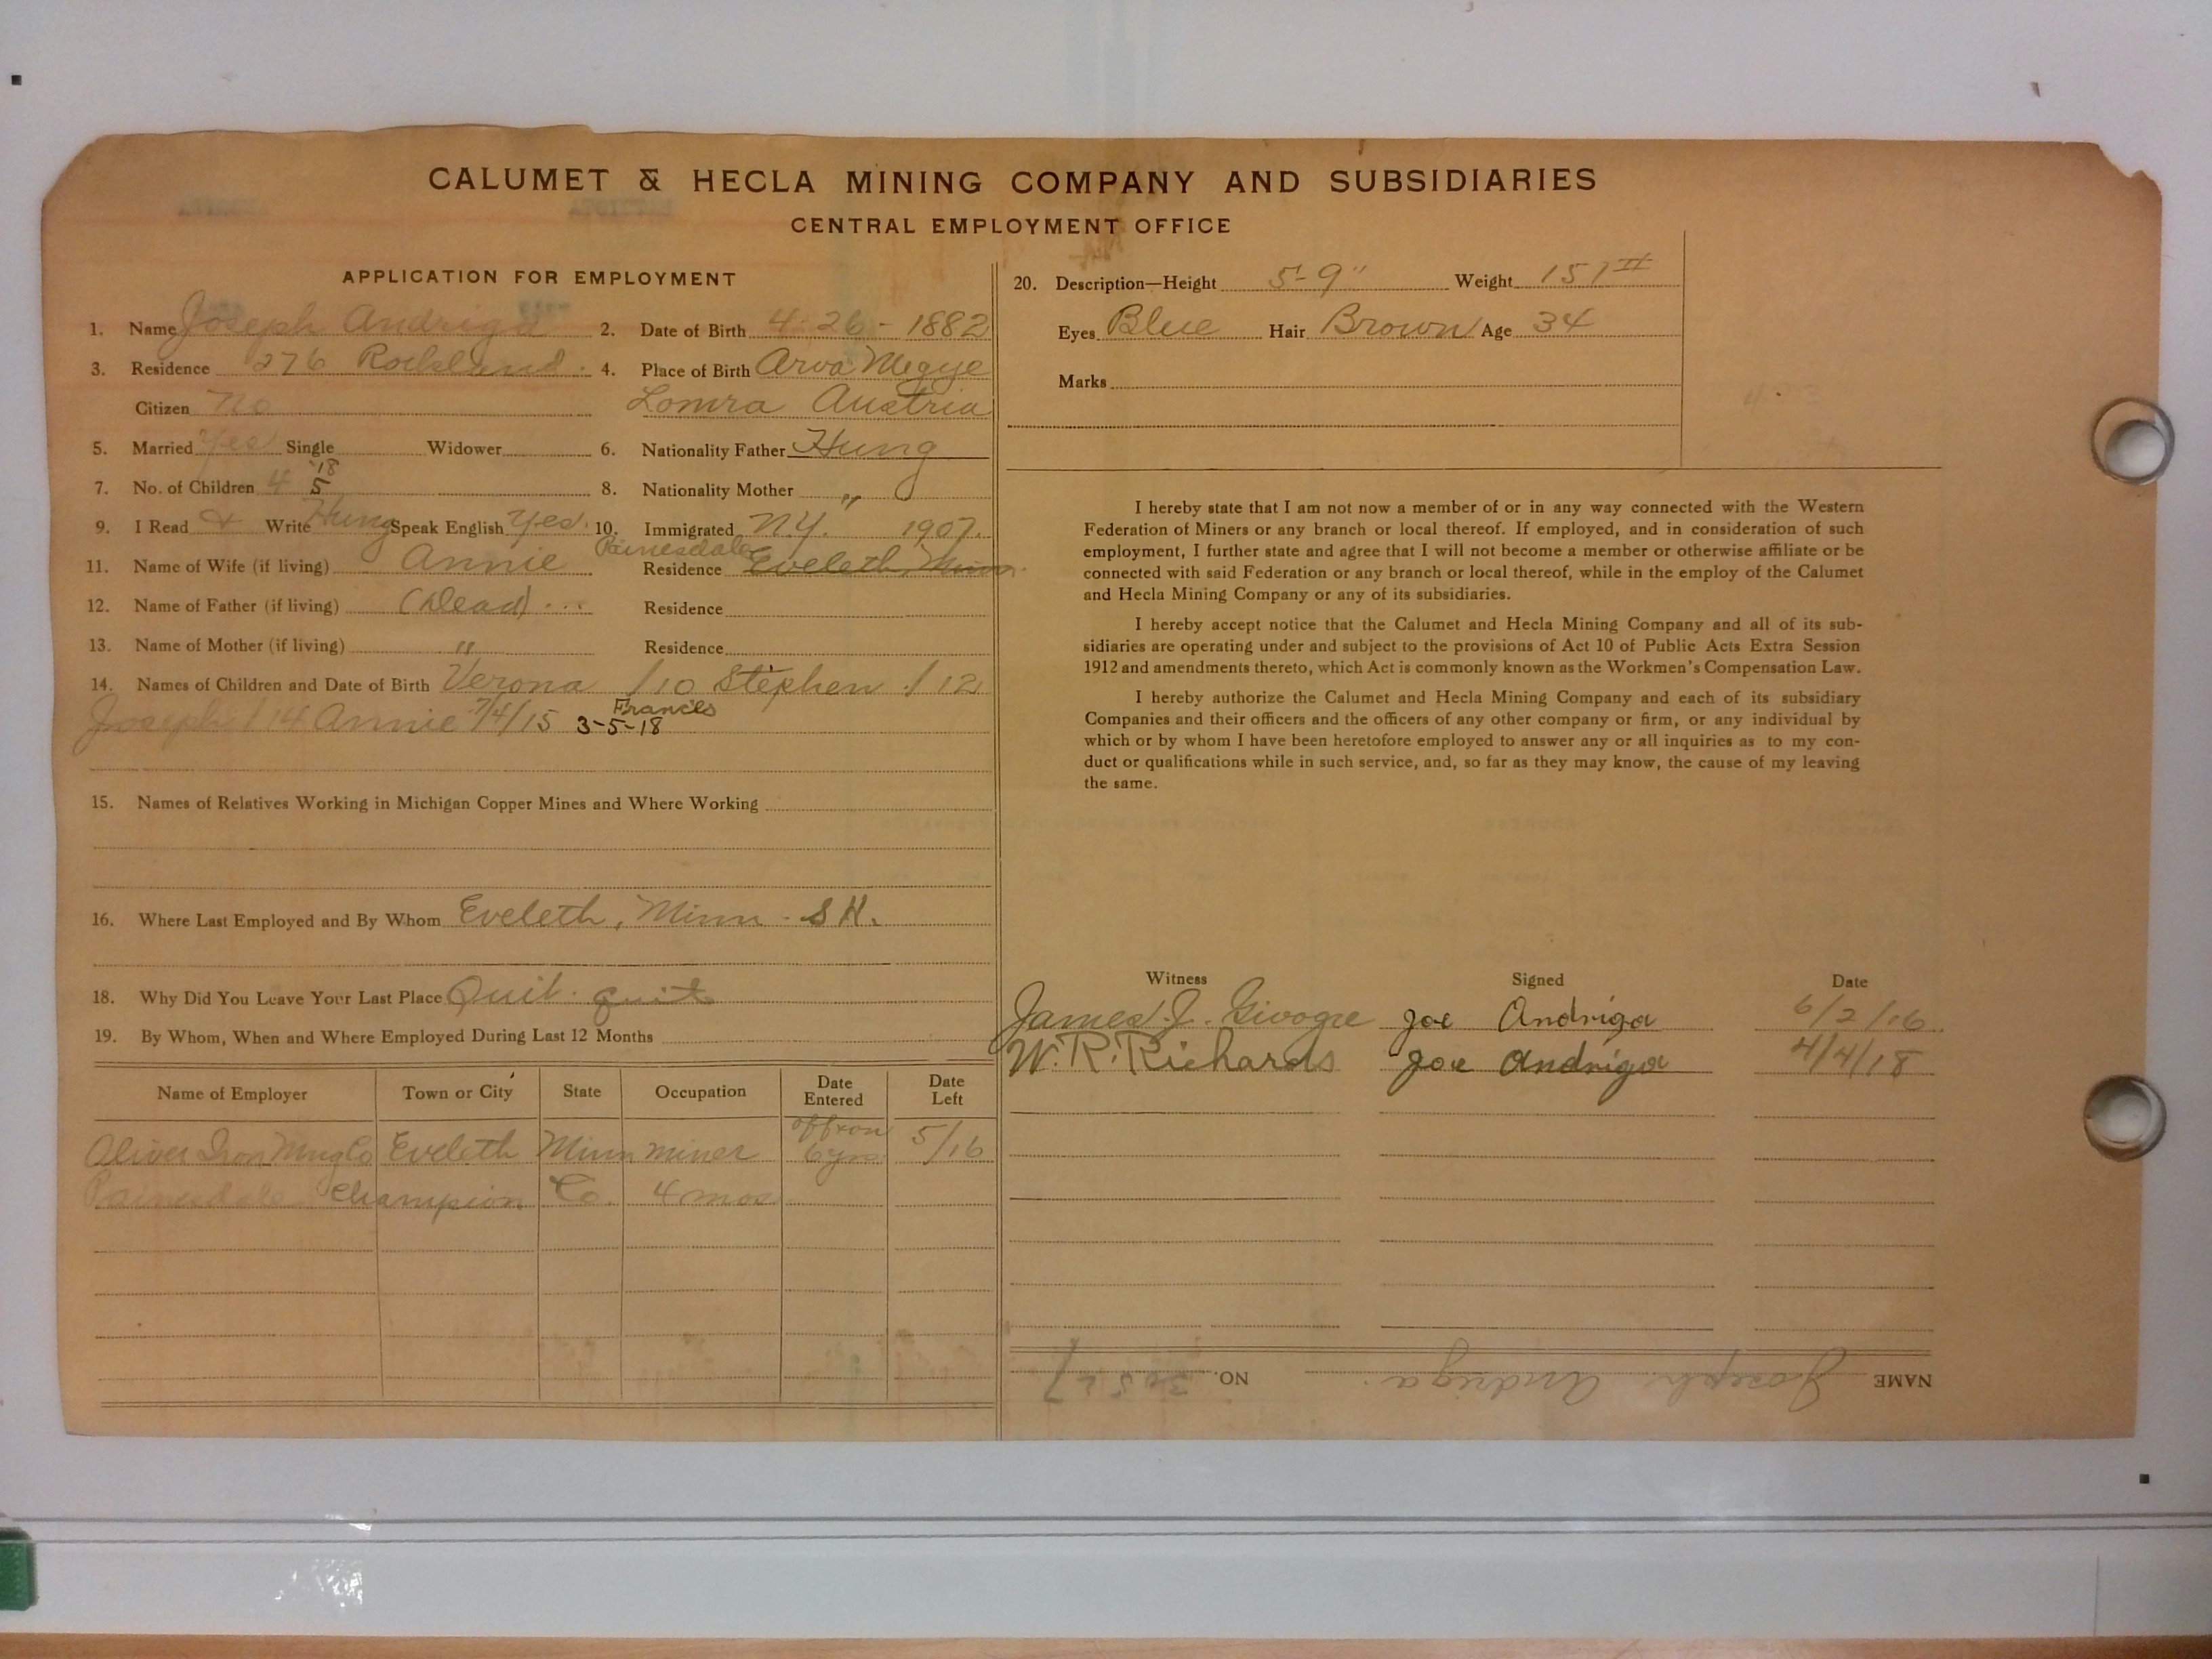 CALUMET & HECLA MINING COMPANY AND SUBSIDIARIES
CENTRAL EMPLOYMENT OFFICE
APPLICATION FOR EMPLOYMENT
1. Name Joseph Andriga 2. Date of Birth 4-26-1882
3. Residence 276 Rockland. 4. Place of Birth Arva Megye
Citizen No Lomra Austria
5. Married Yes Single Widower 6. Nationality Father Hung
'18
7. No. of Children 4 5 8. Nationality Mother "
9. I Read & Write Hung Speak English Yes. 10. Immigrated N.Y. 1907.
Painesdale
11. Name of Wife (if living) Annie Residence Eveleth, Minn.
12. Name of Father (if living) (Dead) Residence
13. Name of Mother (if living) " Residence
14. Names of Children and Date of Birth Verona /10 Stephen /12
Francis
Joseph /14 Annie 7/4/15 3-5-18
15. Names of Relatives Working in Michigan Copper Mines and Where Working
16. Where Last Employed and By Whom Eveleth, Minn. S H.
18. Why Did You Leave Your Last Place Quit. quit
19. By Whom, When and Where Employed During Last 12 Months
Name of Employer Town or City State Occupation Date Entered Date Left
off & on
Oliver Iron Mng Co Eveleth Minn miner 6 yrs 5/16
Painesdale Champion Co. 4 mos
20. Description—Height 5'-9" Weight 151#
Eyes Blue Hair Brown Age 34
Marks
I hereby state that I am not now a member of or in any way connected with the Western
Federation of Miners or any branch or local thereof. If employed, and in consideration of such
employment, I further state and agree that I will not become a member or otherwise affiliate or be
connected with said Federation or any branch or local thereof, while in the employ of the Calumet
and Hecla Mining Company or any of its subsidiaries.
I hereby accept notice that the Calumet and Hecla Mining Company and all of its sub-
sidiaries are operating under and subject to the provisions of Act 10 of Public Acts Extra Session
1912 and amendments thereto, which Act is commonly known as the Workmen's Compensation Law.
I hereby authorize the Calumet and Hecla Mining Company and each of its subsidiary
Companies and their officers and the officers of any other company or firm, or any individual by
which or by whom I have been heretofore employed to answer any or all inquiries as to my con-
duct or qualifications while in such service, and, so far as they may know, the cause of my leaving
the same.
Witness Signed Date
James J. Joe Andriga 6/2/16
W. R. Richards Joe Andriga 4/4/18
NAME Joseph Andriga. NO.